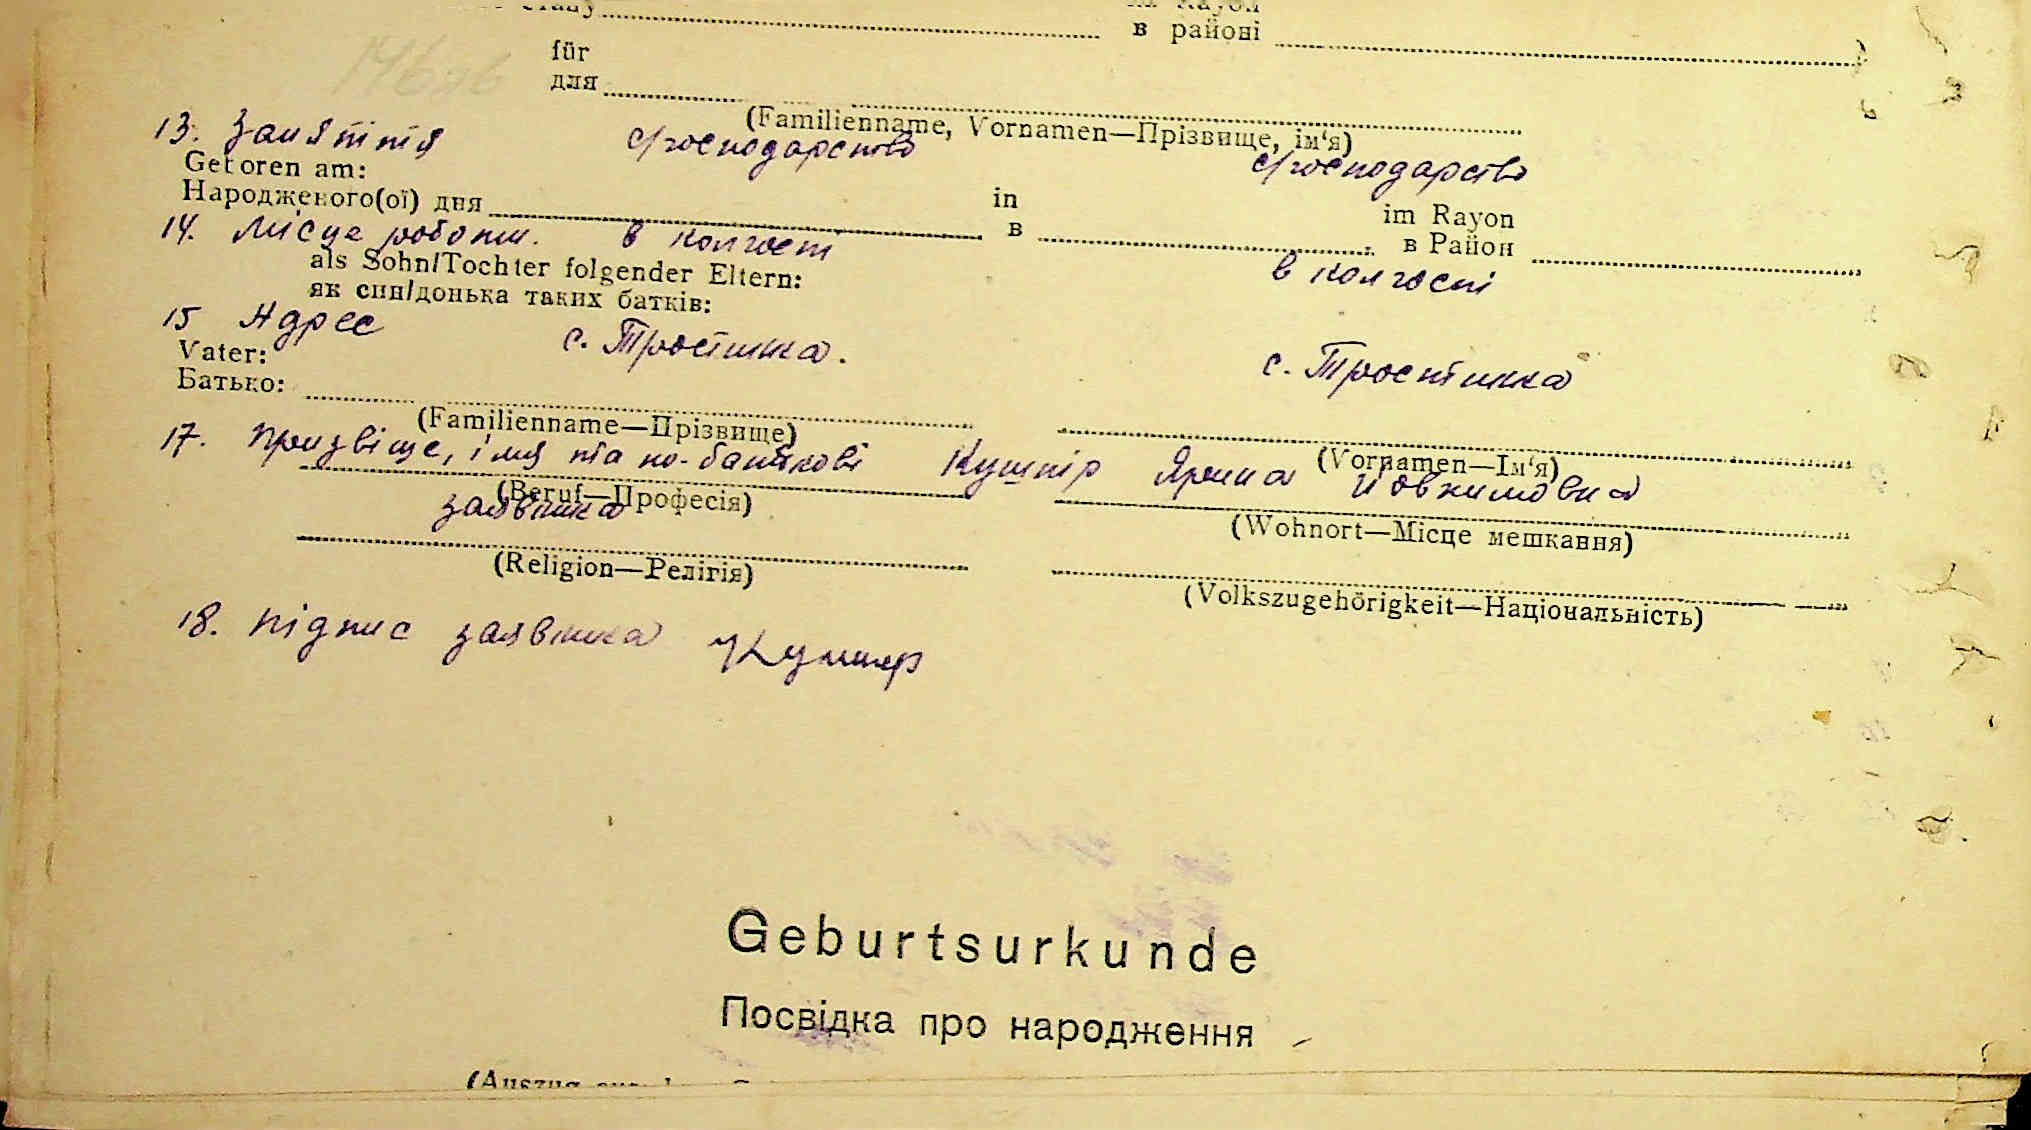 в районі
für
для
(Familienname, Vornamen—Прізвище, ім'я)
13. Заняття с/господарство с/господарство
Geboren am:
Народженого(ої) дня in в im Rayon в Район
14. Місце роботи. в колгоспі в колгоспі
als Sohn/Tochter folgender Eltern:
як син/донька таких батків:
15 Адрес с. Тростинка. с. Тростинка
Vater:
Батько:
(Familienname—Прізвище) (Vornamen—Ім'я)
17. Призвіще, імя та по-батькові Кушнір Ярина Йовхимовна
заявника
(Beruf—Професія) (Wohnort—Місце мешкання)
(Religion—Релігія) (Volkszugehörigkeit—Національність)
18. Підпис заявника
Geburtsurkunde
Посвідка про народження